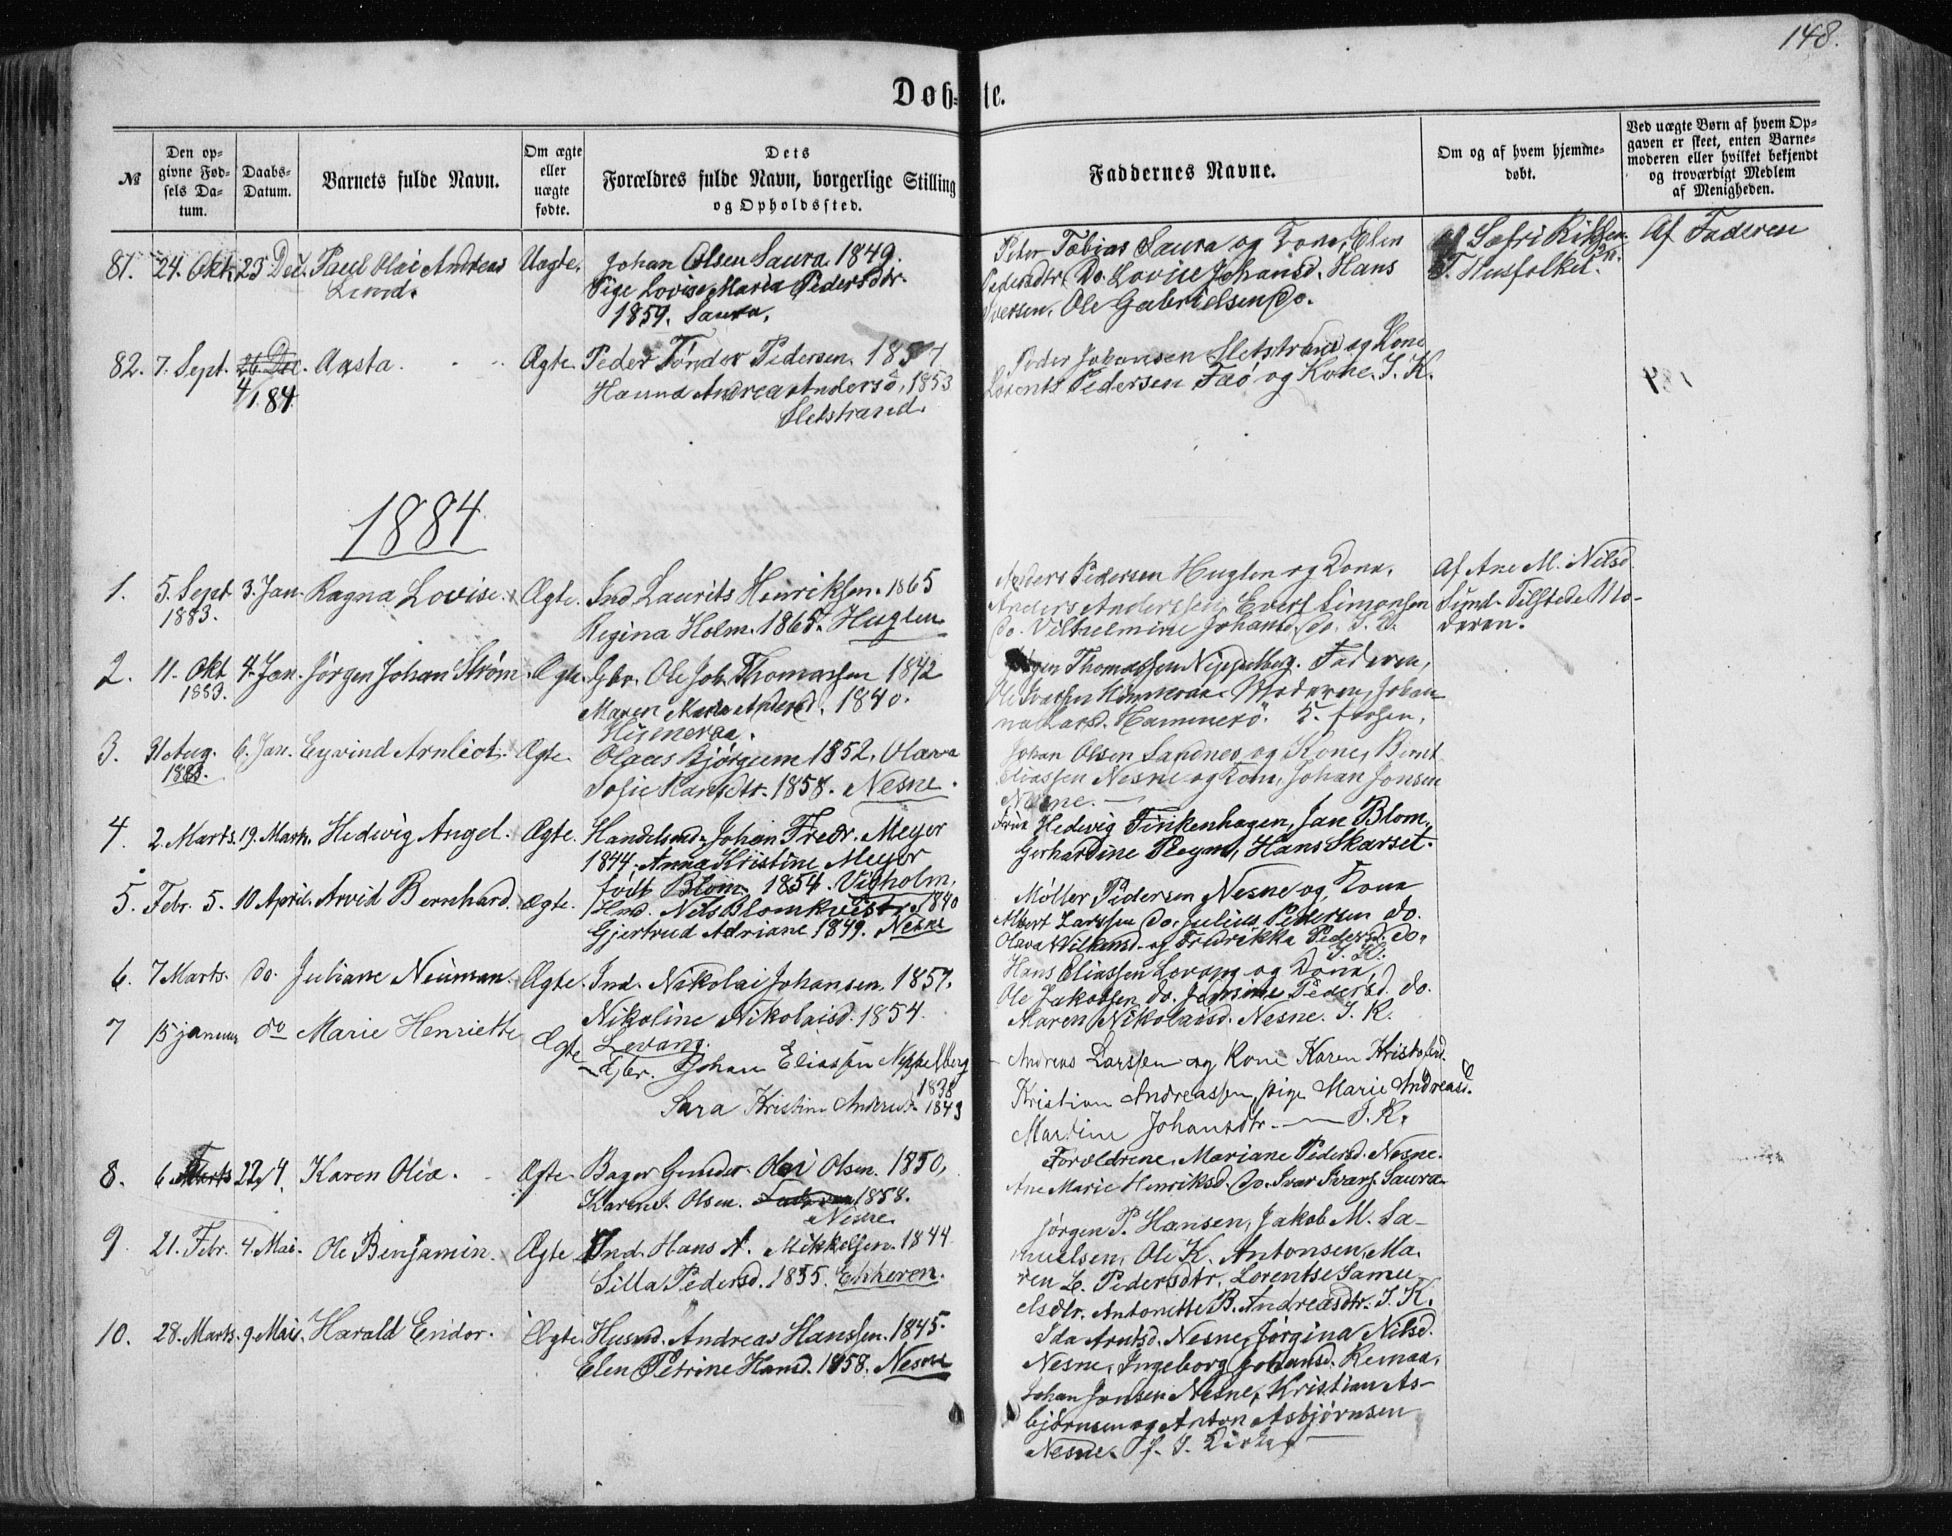 148.
Døb-te.
№
Den op-
givne Fød-
sels Da-
tum.
Daabs-
Datum.
Barnets fulde Navn.
Om ægte
eller
uægte
fødte.
Dets
Forældres fulde Navn, borgerlige Stilling
og Opholdssted.
Faddernes Navne.
Om og af hvem hjemme-
døbt.
Ved uægte Børn af hvem Op-
gaven er skeet, enten Barne-
moderen eller hvilket bekjendt
og troværdigt Medlem
af Menigheden.
81. 24. Okt. 25 Dec. Paul Olai Andreas
Lund.
Uægte.
Johan Olsen Saura 1849.
Pige Lovise Maria Pedersdtr.
1859. Saura.
Peter Tobias Saura og Kone, Elen
Pedersdtr. Do. Lovise Johansd. Hans
Iversen, Ole Gabrielsen Do.
T. Husfolket.
Af Faderen
82. 7. Sept. 26 Dec. Aasta.
4/1.84.
Ægte.
Peder Tønder Pedersen. 1857
Hanna Andrea Andersd. 1853
Sletstrand.
Peder Johansen Sletstrand og Kone
Lorents Pedersen Faø og Kone. I. K.
1884
1. 5. Sept. 3. Jan. Ragna Lovise.
1883.
Ægte.
Ind. Laurits Henriksen. 1865
Regina Holm. 1865. Huglen
Anders Pedersen Huglen og Kone,
Anders Anderssen, Evert Simonsen
do. Vilhelmine Johansd. do. I. K.
Af Ane M. Nilsd.
Sund. Tilstede Mo-
deren.
2. 11. Okt 4. Jan. Jørgen Johan Strøm.
1883.
Ægte.
Gbr. Ole Joh. Thomassen 1842
Maren Maria Andersd. 1840.
Jørgen Thomassen Neppelberg. Faderen,
Moderen, Johan-
na Larsd. Hammerø.
3. 31 Aug. 6. Jan. Eyvind Arnliot.
1883.
Ægte.
Olaus Bjørgum 1852, Olava
Sofie Hansdtr. 1858. Nesne.
Johan Olsen Sandnes og Kone, Bernt
Eliassen Nesne og Kone, Johan Jonsen
Nesne.
4. 2. Marts. 19. Marts. Hedevig Angel.
Ægte.
Handelsmd. Johan Fredr. Meyer
1844. Anna Kristine Meyer
født Blom. 1854. Vigholm.
Frue Hedevig Finkenhagen, Jan Blom,
Gerhardine Pleym, Hans Skarset.
5. Febr. 5. 10 April. Arvid Bernhard.
Ægte.
Hmd. Nils Blomkvist 1840
Gjertrud Adriane 1849. Nesne
Møller Pedersen Nesne og Kone
Albert Larssen Do. Julius Pedersen do.
Olava Nilsand. og Fredrikka Pedersd. do.
I. K.
6. 7 Marts. do. Juliane Neuman.
Ægte.
Ind. Nikolai Johansen. 1857.
Nikoline Nikolaisd. 1854.
Levang.
Hans Eliassen Levang og Kone,
Ole Jakobsen do. Jensine Pedersd. do.
Maren Nikolaisd. Nesne. I. K.
7 15 januar do Marie Henriette
Ægte
Gbr. Johan Eliassen Neppelberg
1838
Sara Kristine Andersd. 1843
Andreas Larssen og Kone Karen Kristofersd.
Kristian Andreassen, pige Marie Andreasd.
Martine Johansdtr. — I. K.
8. 6 Marts 22/4. Karen Olea.
Ægte.
Bager Gunder Olai Olsen. 1850,
Karen J. Olsen. 1858.
Nesne
Forældrene. Mariane Pedersd. Nesne.
Ane Marie Henriksd. Do. Ivar Ivars. Saura
9. 21. Febr. 4. Mai. Ole Benjamin.
Ægte
Ind. Hans A. Mikkelsen. 1844
Silla Pedersd. 1855. Enheren.
Jørgen P. Hansen, Jakob M. Sa-
muelsen, Ole K. Antonsen, Ma-
ren L. Pedersdtr, Lorentse Samu-
elsdtr. Antonette B. Andreasdtr. I. K.
10. 28. Marts. 9. Mai. Harald Endor.
Ægte.
Husmd. Andreas Hanssen. 1845.
Elen Petrine Hansd. 1858. Nesne
Ida Arntsd. Nesne, Jørgina Nilsd.
Nesne, Ingeborg Johansd. Remaa,
Johan Jonsen Nesne, Kristian As-
bjørnsen og Anton Asbjørnsen
Nesne. I. Kirken